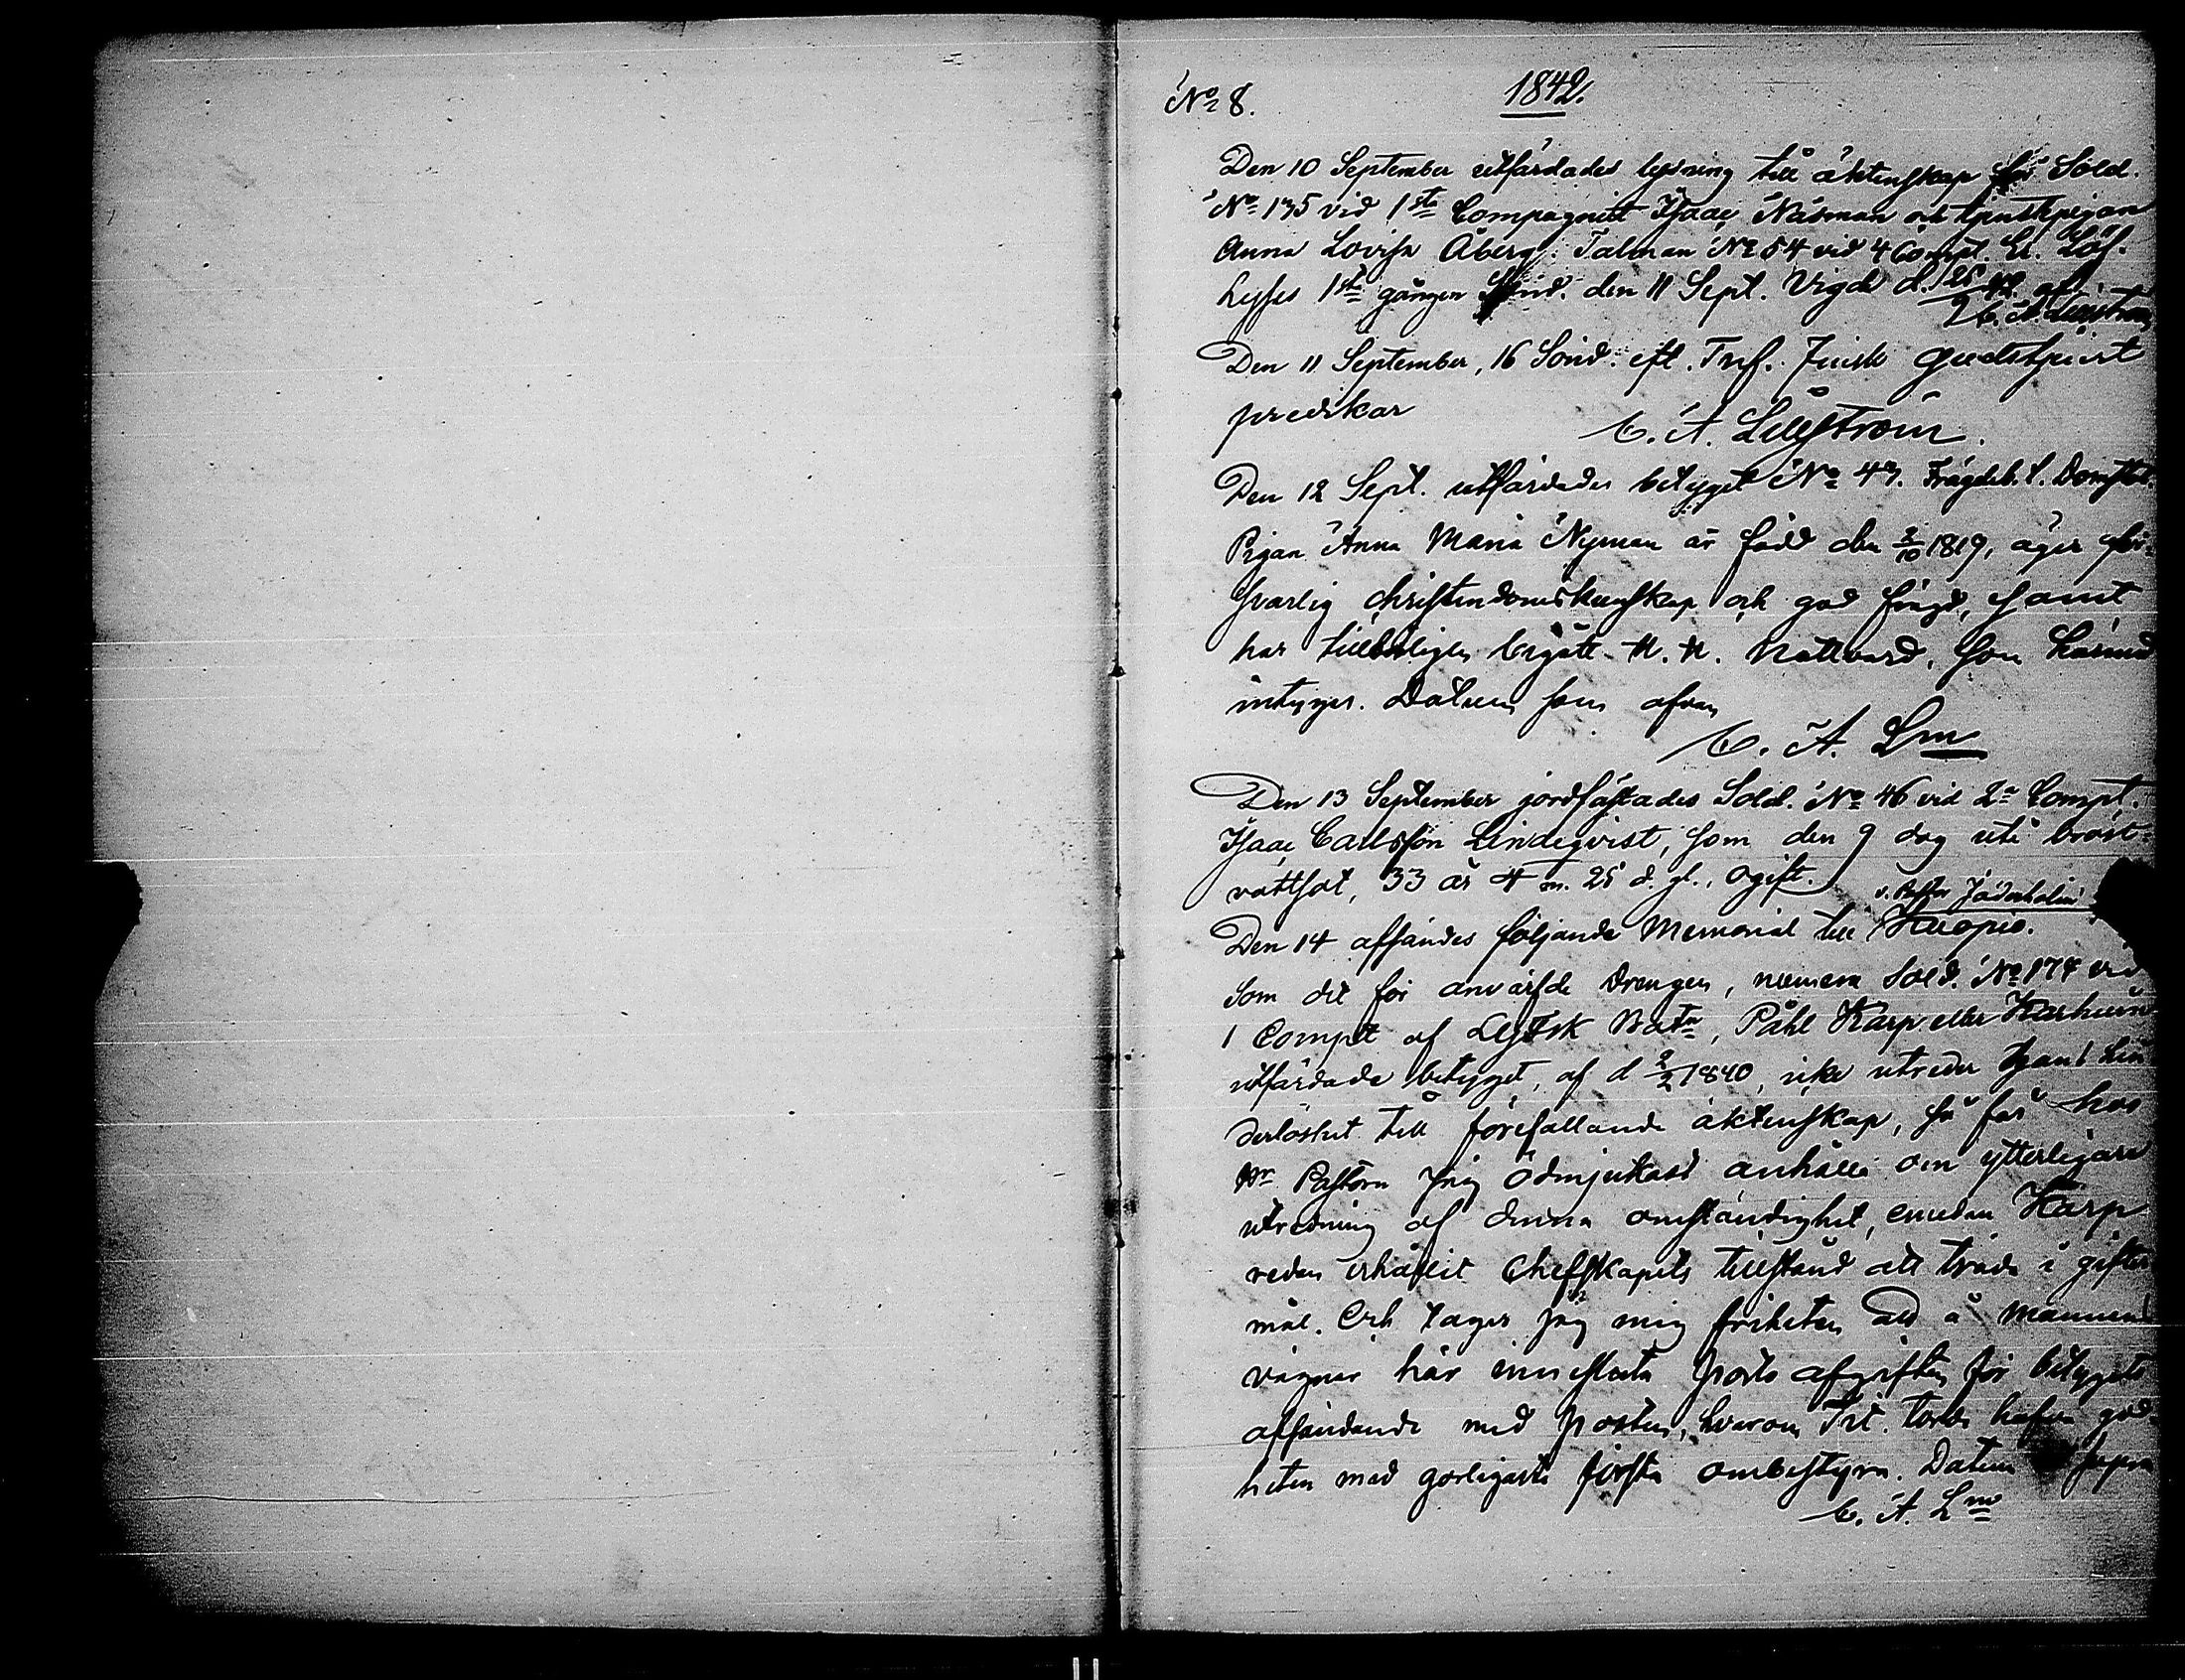 No 8.
1842.
Den 10 September utfärdades lysning till äktenskap för Sold.
No 135 vid 1sta Compagniet Isaac Näsman och tjenstpigan
Anna Lovisa Åberg. Talman No 54 vid 4 Compt.
Lysses 1sta gången Sönd. den 11 Sept. Vigde d. af
C. A. Lillström
Den 11 September, 16 Sönd. eft. Tref. Finsk Gudstjenst
predikar
C. A. Lillström.
Den 12 Sept. utfärdades betyget No 43.
Pigan Anna Maria Nyman är född den 2/10 1819, äger för-
svarlig christendomskunskap och god frägd, samt
har tillbörligen begått H. H. Nattvard, som härmed
intygas. Datum som ofvan
C. A. Lm
Den 13 September jordfästades Sold. No 46 vid 2a Compt.
Isaac Carlsson Lindeqvist, som den 9 dog uti bröst-
vattsot, 33 år 4 m. 25 d. gl., ogift.
v. Pastor Jäderholm i
Den 14 afsändes följande Memorial till Kuopio.
Som det för anvärfde Drengen, numera Sold. No 174 vid
1 Compt af Batn, Påhl Karp eller Karhunen
utfärdade betyget, af d 2/2 1840, icke utreder hans hin-
derlöshet till förefallande äktenskap, så får hos
Hr Pastorn jag ödmjukast anhålla om ytterligare
utredning af denna omständighet, emedan Karp
redan erhållit Chefskapets tillstånd att träda i gifter-
mål. Och tager jag mig friheten att å mannens
vägnar här innesluta porto afgiften för betygets
afsändande med posten, hvarom Tit. torde hafva god-
heten med görligaste första ombestyra. Datum supra
C. A. Lm